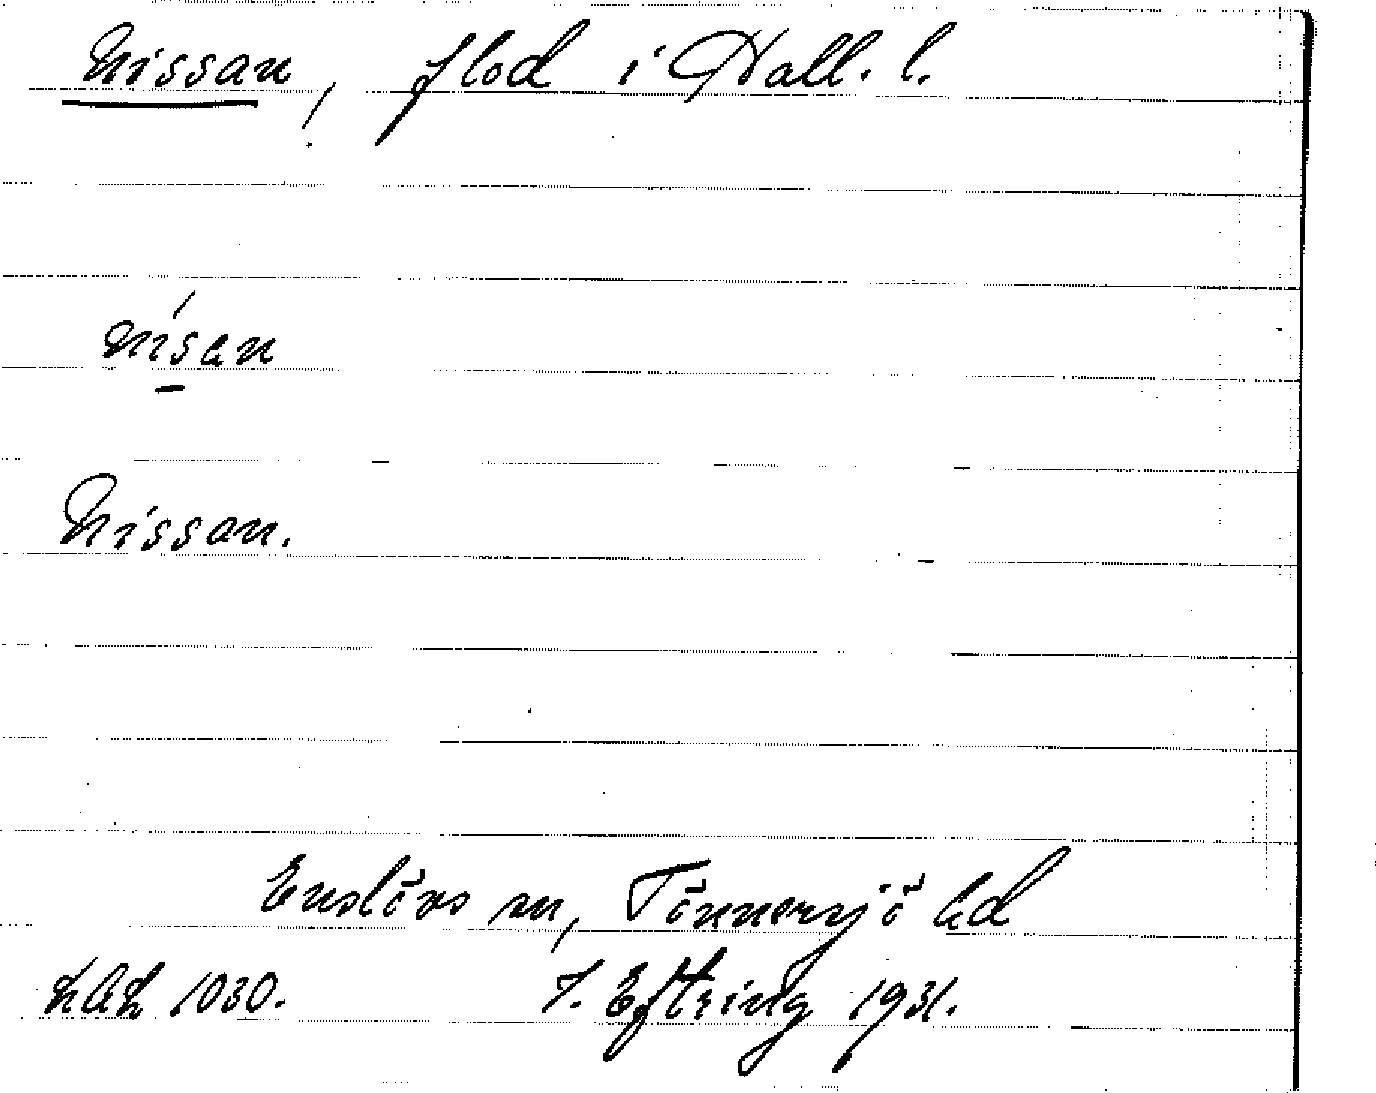 Nissan, flod i Hall. l.
nísan
Nissan.
Enslövs sn, Tönnersjö hd
LAL 1030. J. Eftring 1931.